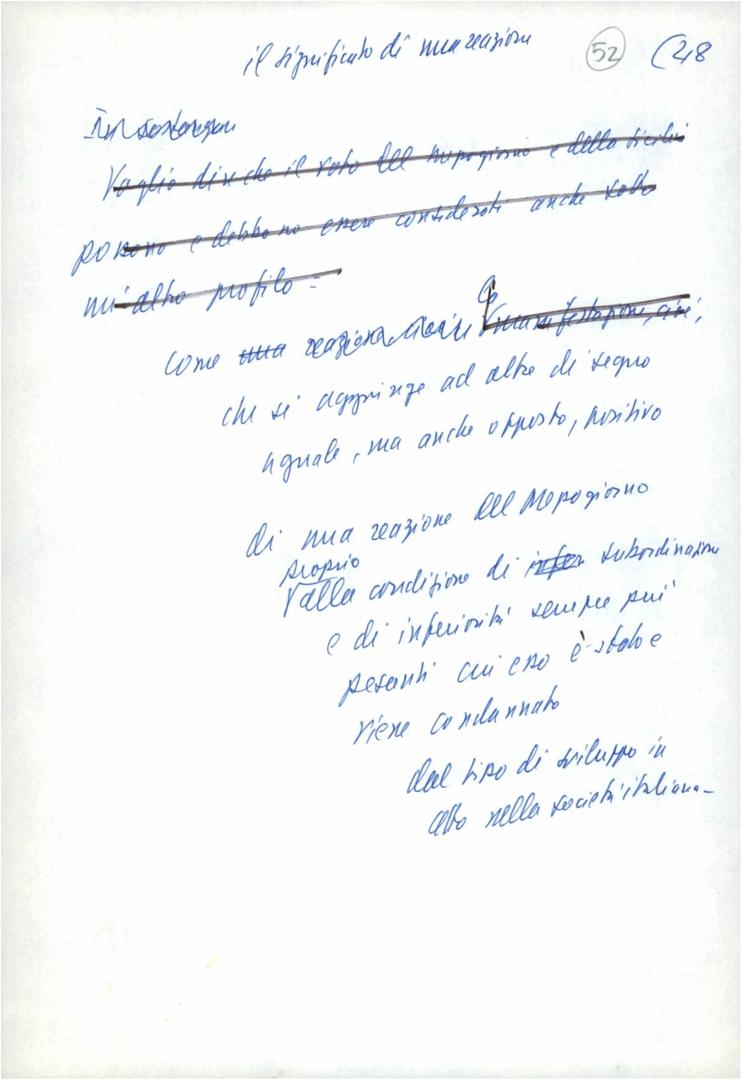 il significato di una reazione 52 (48
In sostanza
Voglio dire che il voto del Mezzogiorno e della Sicilia
possono e debbono essere considerati anche sotto
un altro profilo =
come una reazione manifestazione, cioè,
che si aggiunge ad altre di segno
uguale, ma anche opposto, positivo
di una reazione del Mezzogiorno
proprio
alla condizione di infer subordinazione
e di inferiorità sempre più
pesanti cui esso è stato e
viene condannato
dal tipo di sviluppo in
atto nella società italiana-